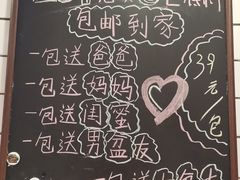 包邮到家
一包送爸爸
一包送妈妈
一包送闺蜜
一包送男盆友
39元/包
一包送